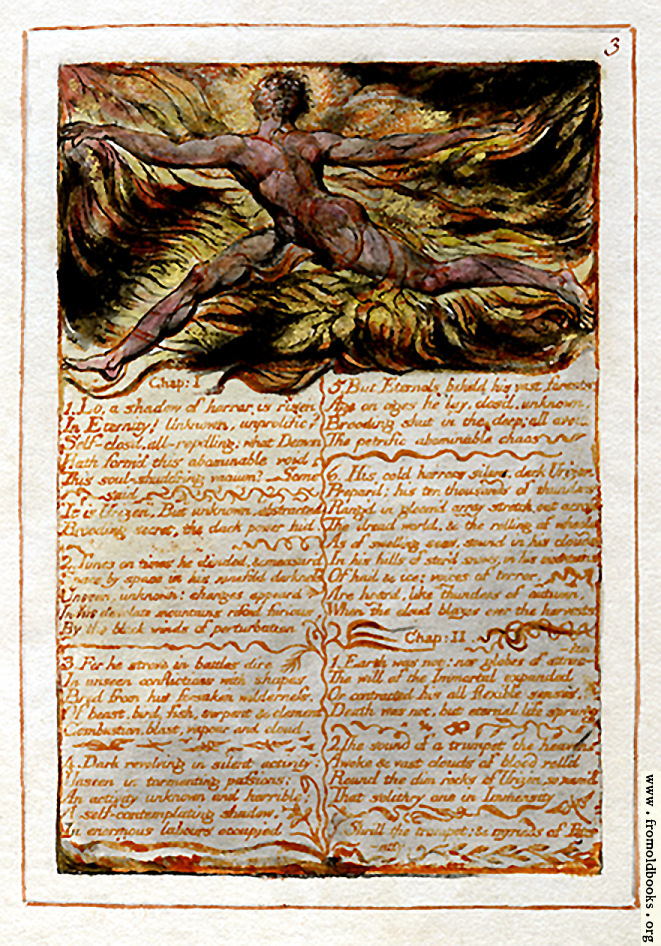 3
Chap: I
1. Lo, a shadow of horror is risen
In Eternity! Unknown, unprolific?
Self-closd, all-repelling; what Demon
Hath form'd this abominable void
This soul-shudd'ring vacuum? Some
said
It is Urizen, But unknown, abstracted
Brooding secret, the dark power hid.
2. Times on times he divided, & measur'd
Space by space in his ninefold darkness
Unseen, unknown: changes appeard
In his desolate mountains rifted furious
By the black winds of perturbation
3. For he strove in battles dire
In unseen conflictions with shapes
Bred from his forsaken wilderness,
Of beast, bird, fish, serpent & element
Combustion, blast, vapour and cloud.
4. Dark revolving in silent activity:
Unseen in tormenting passions;
An activity unknown and horrible;
A self-contemplating shadow,
In enormous labours occupied
5. But Eternals beheld his vast forests
Age on ages he lay, clos'd, unknown,
Brooding shut in the deep; all avoid
The petrific abominable chaos
6. His cold horrors silent, dark Urizen
Prepar'd; his ten thousands of thunders
Rang'd in gloom'd array stretch out across
The dread world, & the rolling of wheels
As of swelling seas, sound in his clouds
In his hills of stor'd snows, in his mountains
Of hail & ice; voices of terror,
Are heard, like thunders of autumn,
When the cloud blazes over the harvests
Chap: II
1. Earth was not: nor globes of attrac-
-tion
The will of the Immortal expanded
Or contracted his all flexible senses.
Death was not, but eternal life sprung
2. The sound of a trumpet the heavens
Awoke & vast clouds of blood roll'd
Round the dim rocks of Urizen, so nam'd
That solitary one in Immensity
Shrill the trumpet: & myriads of Eter
www.fromoldbooks.org